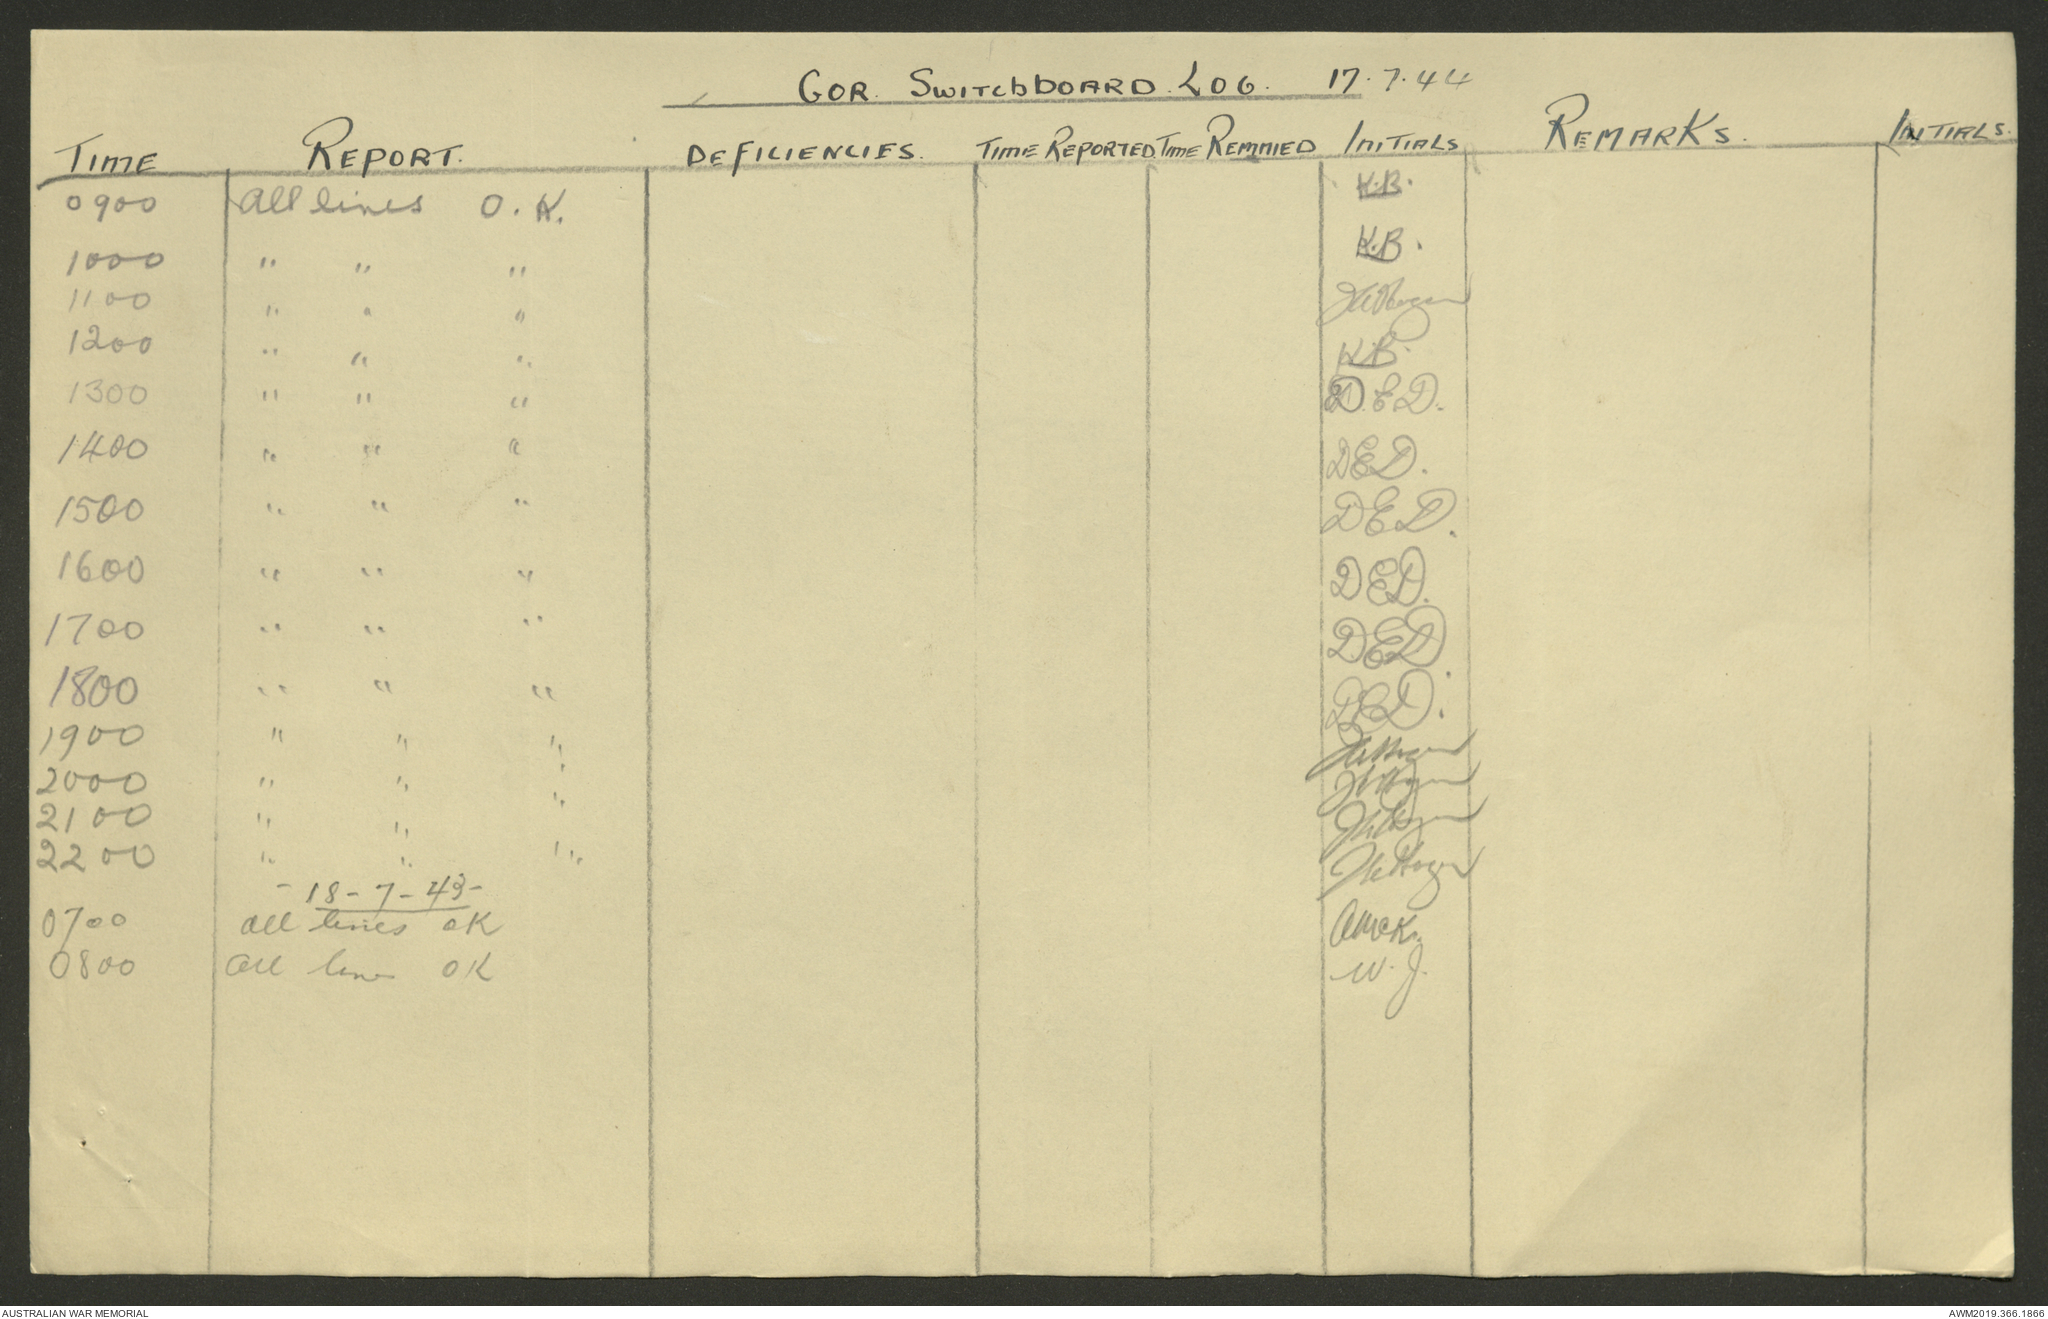 GOR. SWITCHBOARD. LOG. 17.7.44
TIME REPORT. DEFICIENCIES. TIME REPORTED. TIME REMMIED INITIALS REMARKS. INITIALS.
0900 All lines O.K. K.B.
1000 " " " K.B.
1100 " " "
1200 " " " K.B.
1300 " " " D.E.D.
1400 " " " DED.
1500 " " " DED.
1600 " " " DED.
1700 " " " DED.
1800 " " " DED.
1900 " " "
2000 " " "
2100 " " "
2200 " " "
- 18-7-43-
0700 All lines OK AMcK.
0800 All line OK W.J.
AUSTRALIAN WAR MEMORIAL AWM2019.366.1866